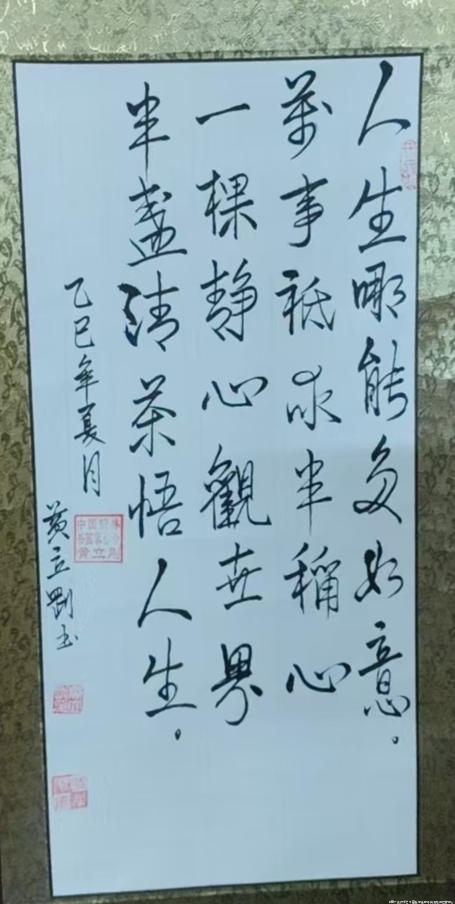 人生哪能多如意。
萬事祗求半稱心
一棵静心觀世界
半盏清茶悟人生。
乙巳年夏月
黄立剛书